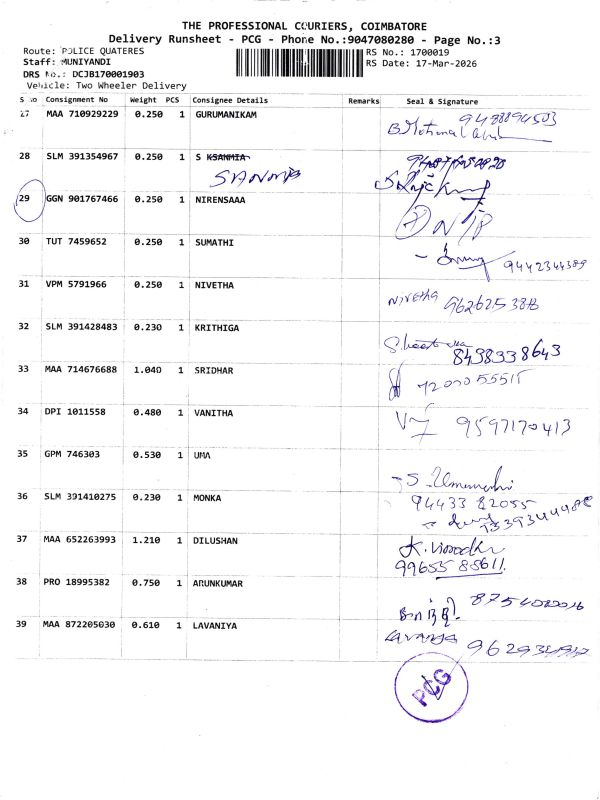 THE PROFESSIONAL COURIERS, COIMBATORE
Delivery Runsheet - PCG - Phone No.:9047080280 - Page No.:3
Route: POLICE QUATERES
RS No.: 1700019
Staff: MUNIYANDI
RS Date: 17-Mar-2026
DRS No.: DCJB170001903
Vehicle: Two Wheeler Delivery
S No Consignment No Weight PCS Consignee Details Remarks Seal & Signature
27 MAA 710929229 0.250 1 GURUMANIKAM
28 SLM 391354967 0.250 1 S KSANMIA
29 GGN 901767466 0.250 1 NIRENSAAA
30 TUT 7459652 0.250 1 SUMATHI
9442344389
31 VPM 5791966 0.250 1 NIVETHA
Nivetha
32 SLM 391428483 0.230 1 KRITHIGA
8438338643
33 MAA 714676688 1.040 1 SRIDHAR
34 DPI 1011558 0.480 1 VANITHA
9597170413
35 GPM 746303 0.530 1 UMA
36 SLM 391410275 0.230 1 MONKA
94433 82055
37 MAA 652263993 1.210 1 DILUSHAN
99655 85611
38 PRO 18995382 0.750 1 ARUNKUMAR
39 MAA 872205030 0.610 1 LAVANIYA
Lavanya
PCG